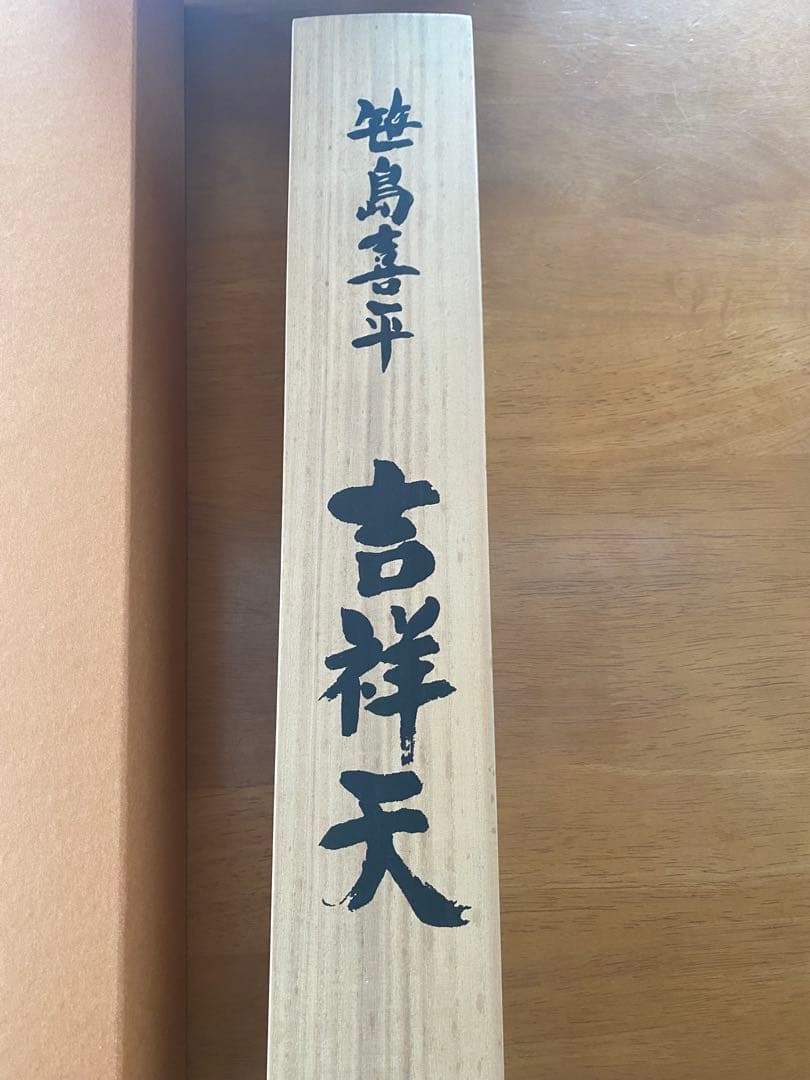 笹島喜平
吉祥天